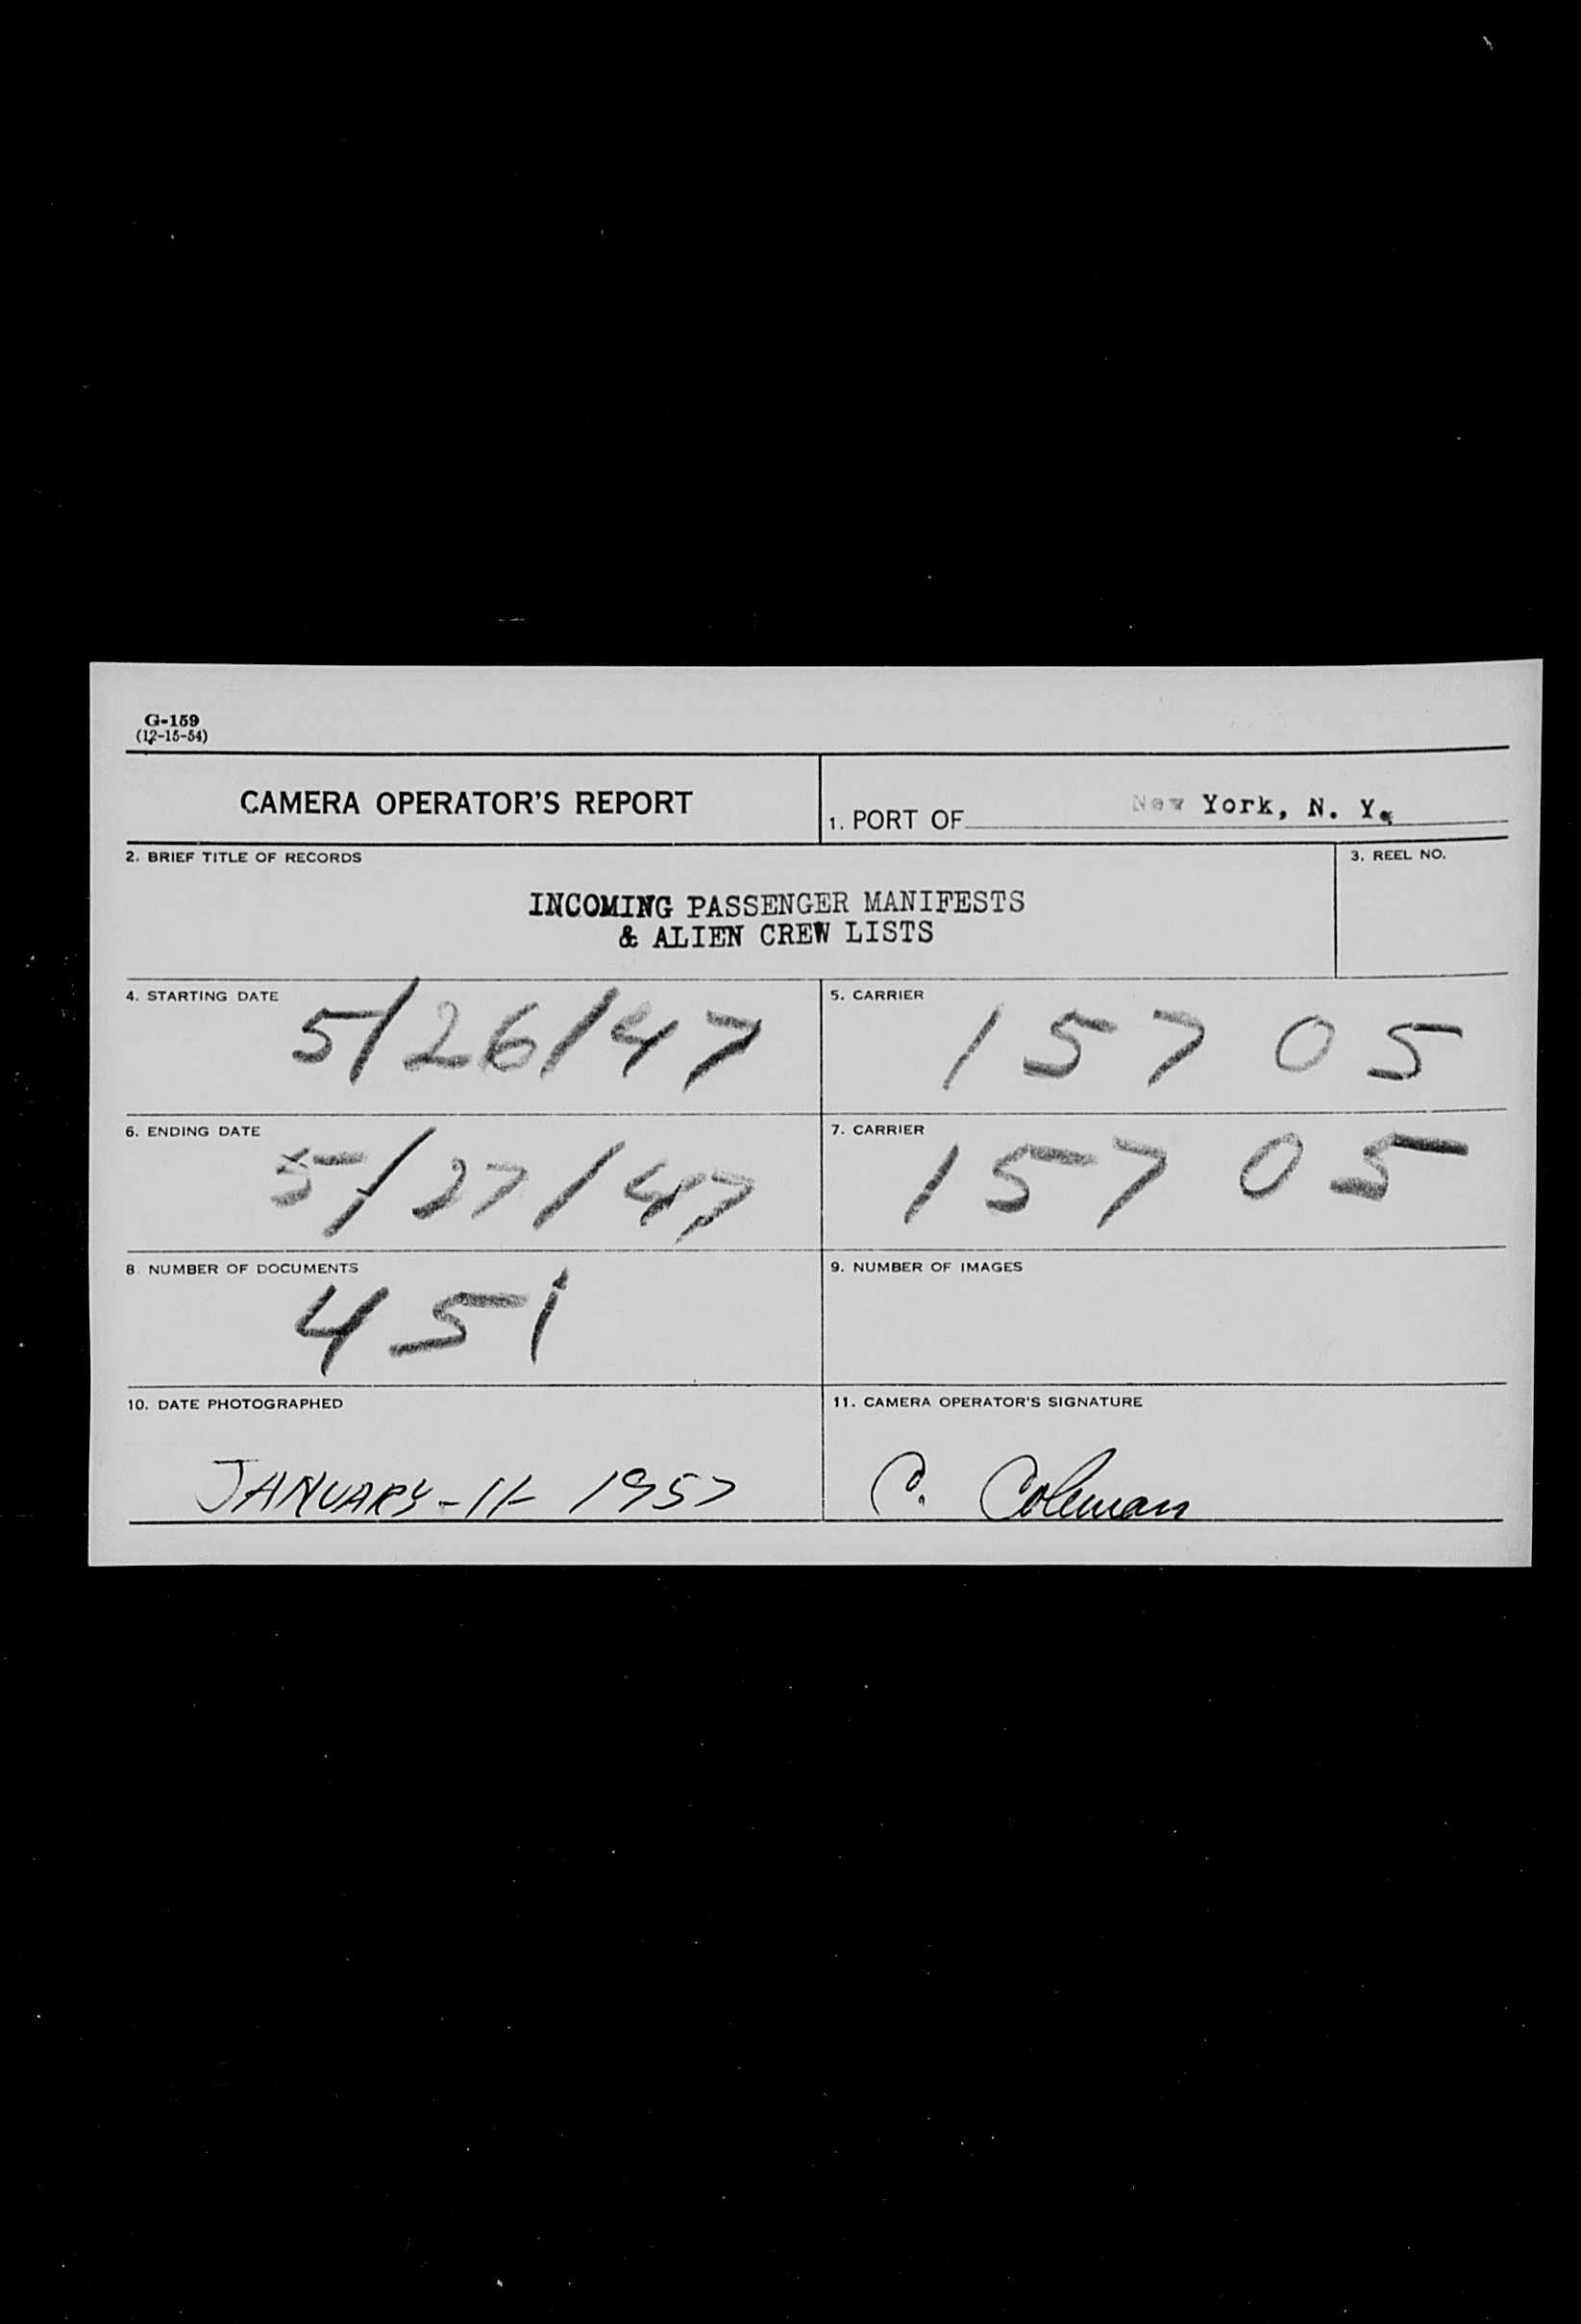 G-159
(12-15-54)
CAMERA OPERATOR'S REPORT
1. PORT OF New York, N. Y.
2. BRIEF TITLE OF RECORDS
INCOMING PASSENGER MANIFESTS
& ALIEN CREW LISTS
3. REEL NO.
4. STARTING DATE
5/26/47
5. CARRIER
15705
6. ENDING DATE
5/27/47
7. CARRIER
15705
8. NUMBER OF DOCUMENTS
451
9. NUMBER OF IMAGES
10. DATE PHOTOGRAPHED
JANUARY-11-1957
11. CAMERA OPERATOR'S SIGNATURE
C. Coleman